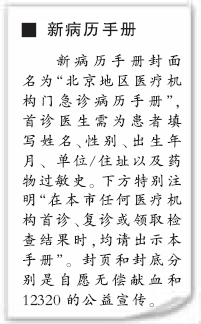 ■ 新病历手册
新病历手册封面
名为“北京地区医疗机
构门急诊病历手册”，
首诊医生需为患者填
写姓名、性别、出生年
月、单位/住址以及药
物过敏史。下方特别注
明“在本市任何医疗机
构首诊、复诊或领取检
查结果时，均请出示本
手册”。封页和封底分
别是自愿无偿献血和
12320的公益宣传。